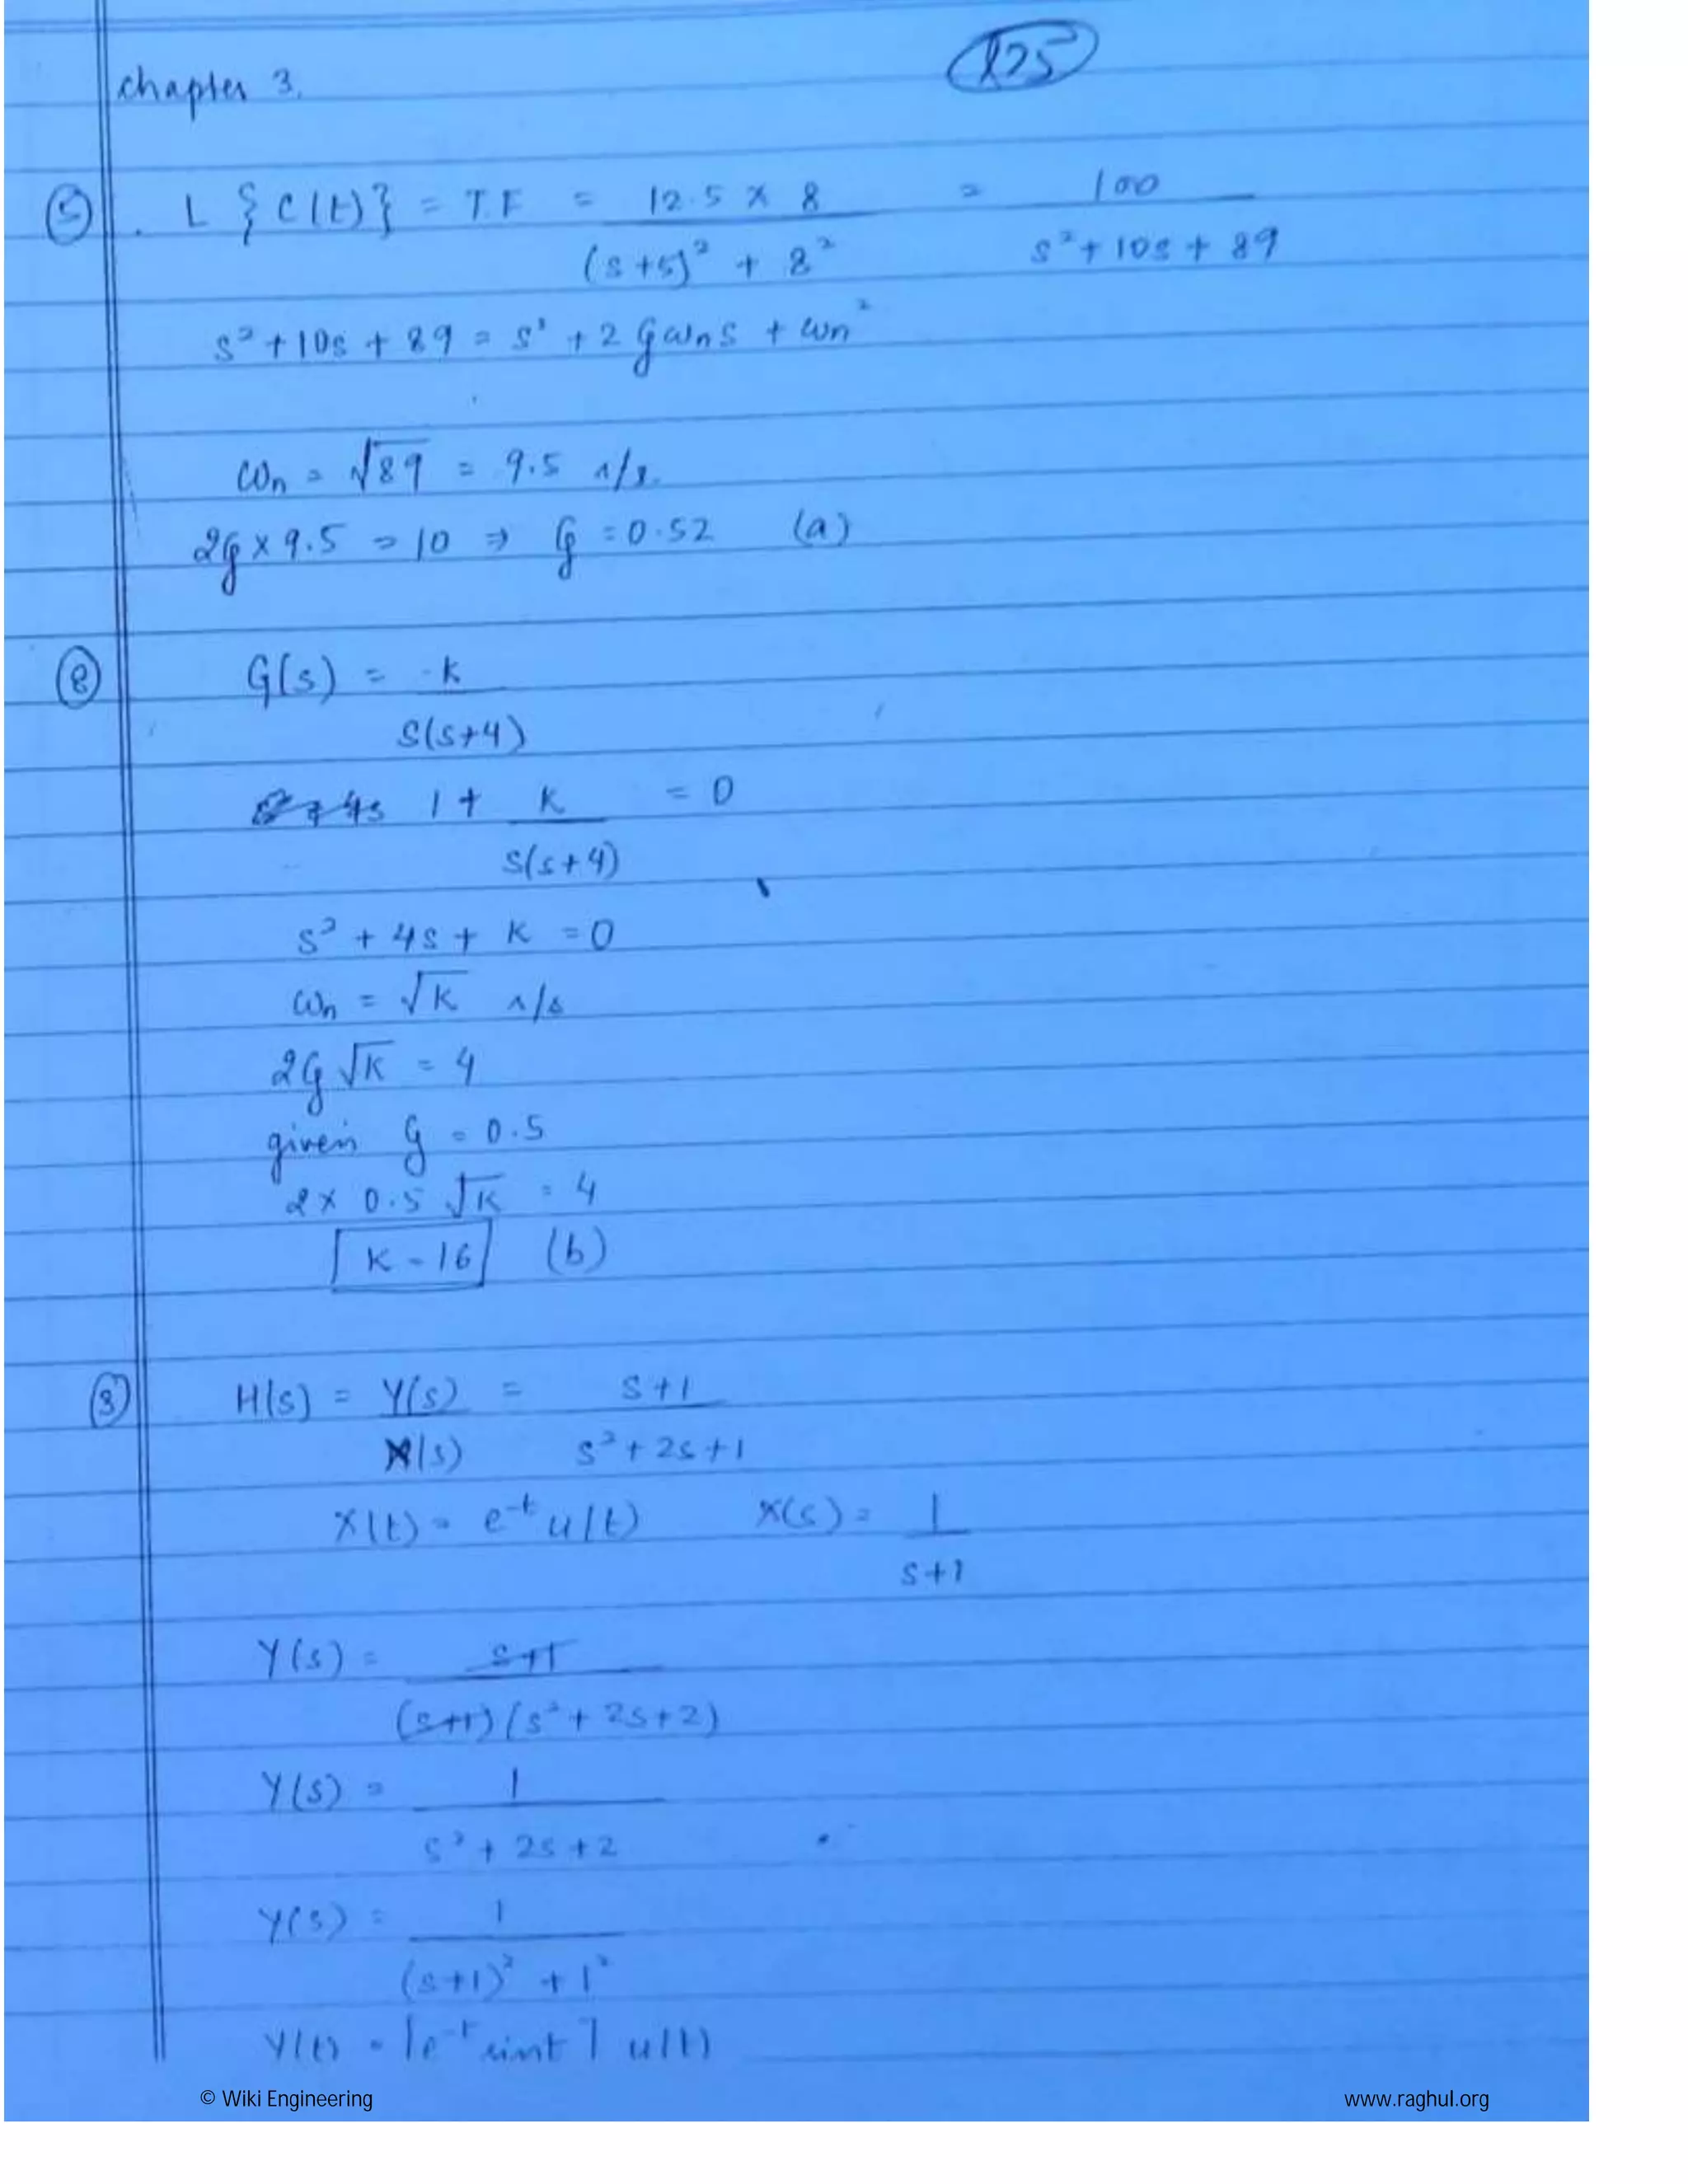 125
chapter 3.
(5). L {C(t)} = T.F = 12.5 x 8 / (s+5)² + 8² = 100 / s²+10s+89
s²+10s+89 = s²+2ζωns + ωn²
ωn = √89 = 9.5 r/s.
2ζ x 9.5 = 10 ⇒ ζ = 0.52 (a)
(8) G(s) = k / s(s+4)
1 + k / s(s+4) = 0
s² + 4s + k = 0
ωn = √k r/s
2ζ √k = 4
given ζ = 0.5
2 x 0.5 √k = 4
k = 16 (b)
(3) H(s) = Y(s) / X(s) = s+1 / s²+2s+1
x(t) = e^-t u(t) X(s) = 1 / s+1
Y(s) = s+1 / (s+1)(s²+2s+2)
Y(s) = 1 / s²+2s+2
Y(s) = 1 / (s+1)² + 1²
y(t) = [e^-t sint] u(t)
© Wiki Engineering www.raghul.org